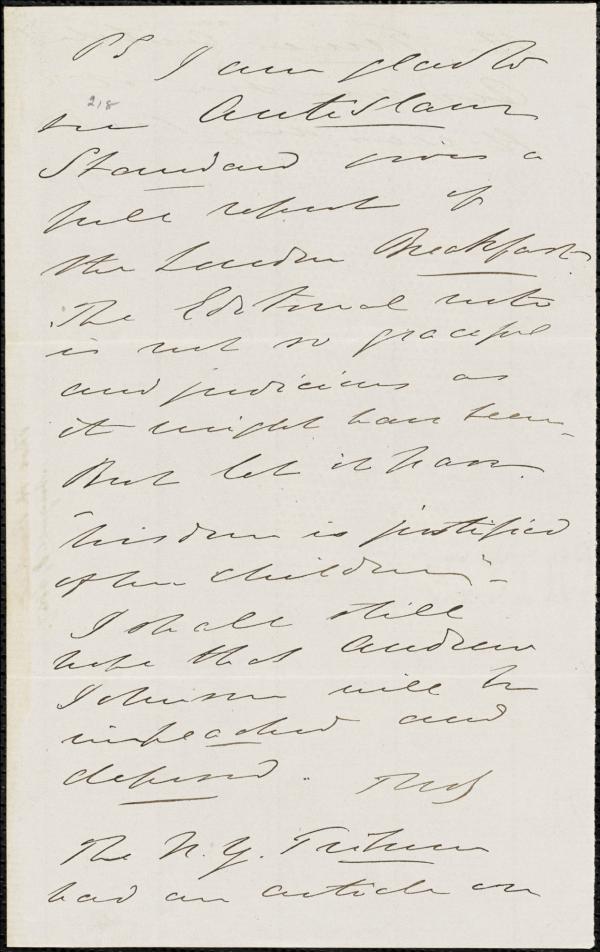 PS I am glad to
218
see Antislavery
Standard gives a
full report of
the London Breakfast.
The Editorial note
is not so graceful
and judicious as
it might have been—
But let it pass.
"Wisdom is justified
of her children"—
I shall still
hope that Andrew
Johnson will be
impeached and
deposed.
The N.Y. Tribune
had an article on